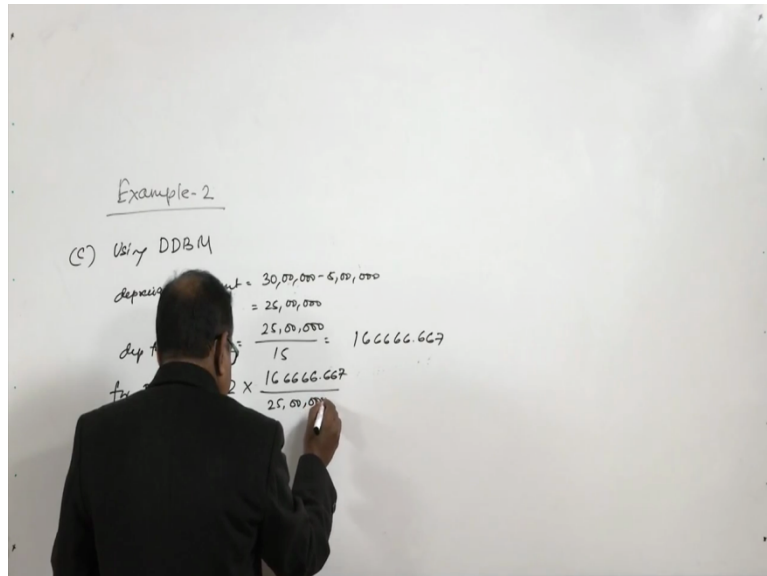 Example-2
(C) Using DDBM
= 30,00,000-5,00,000
= 25,00,000
dep = 25,00,000 / 15 = 166666.667
2 × 166666.667 / 25,00,000